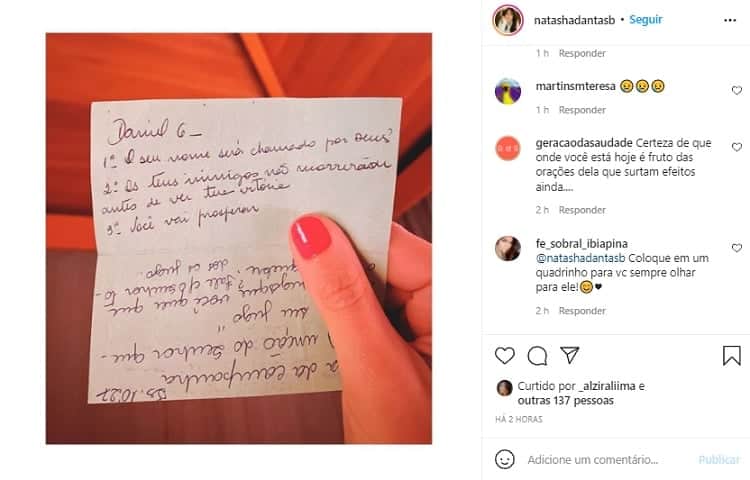 natashadantasb • Seguir
1 h Responder
martinsmteresa 😢😢😢
1 h Responder
geracaodasaudade Certeza de que
onde você está hoje é fruto das
orações dela que surtam efeitos
ainda....
2 h Responder
fe_sobral_ibiapina
@natashadantasb Coloque em um
quadrinho para vc sempre olhar
para ele!😊♥
2 h Responder
Curtido por _alziraliima e
outras 137 pessoas
HÁ 2 HORAS
Adicione um comentário...
Publicar
Daniel 6_
1º O seu nome será chamado por Deus?
2º Os teus inimigos não morrerão
antes de ver tua vitória
3º Você vai prosperar
10.27
a da campanha
unção do Senhor que-
seu jugo"
você quer que
fale c/ o senhor to-
dos os jugo.